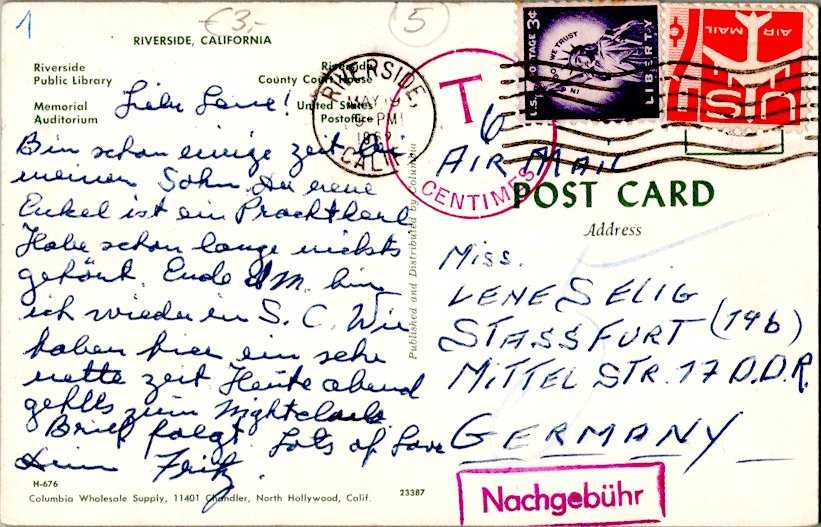 1
€3,-
5
RIVERSIDE, CALIFORNIA
Riverside
Public Library
Riverside
County Court House
Memorial
Auditorium
United States
Postoffice
RIVERSIDE,
MAY
PM
CALIF
T
6
CENTIMES
U.S. POSTAGE 3¢
IN GOD WE TRUST
LIBERTY
AIR MAIL
US
AIR MAIL
POST CARD
Address
Liebe Lene!
Bin schon einige zeit bei
meinen Sohn. Der neue
Enkel ist ein Prachtkerl
Habe schon lange nichts
gehört. Ende d.M. bin
ich wieder in S. C. Wir
haben hier ein sehr
nette zeit Heute abend
gehts zum Nightclub
Brief folgt Lots of Love
Dein Fritz.
Miss.
LENE SELIG
STASSFURT (19b)
MITTEL STR. 17 D.D.R.
GERMANY
Nachgebühr
Published and Distributed by Columbia
H-676
Columbia Wholesale Supply, 11401 Chandler, North Hollywood, Calif.
23387